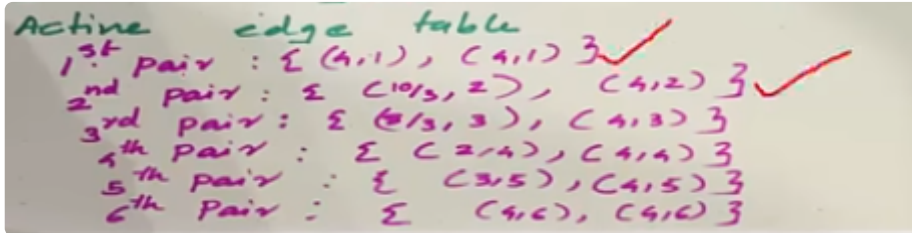 Active edge table
1st pair : { (4,1), (4,1) }
2nd pair : { (10/3, 2), (4,2) }
3rd pair : { (8/3, 3), (4,3) }
4th pair : { (2,4), (4,4) }
5th pair : { (3,5), (4,5) }
6th Pair : { (4,6), (4,6) }